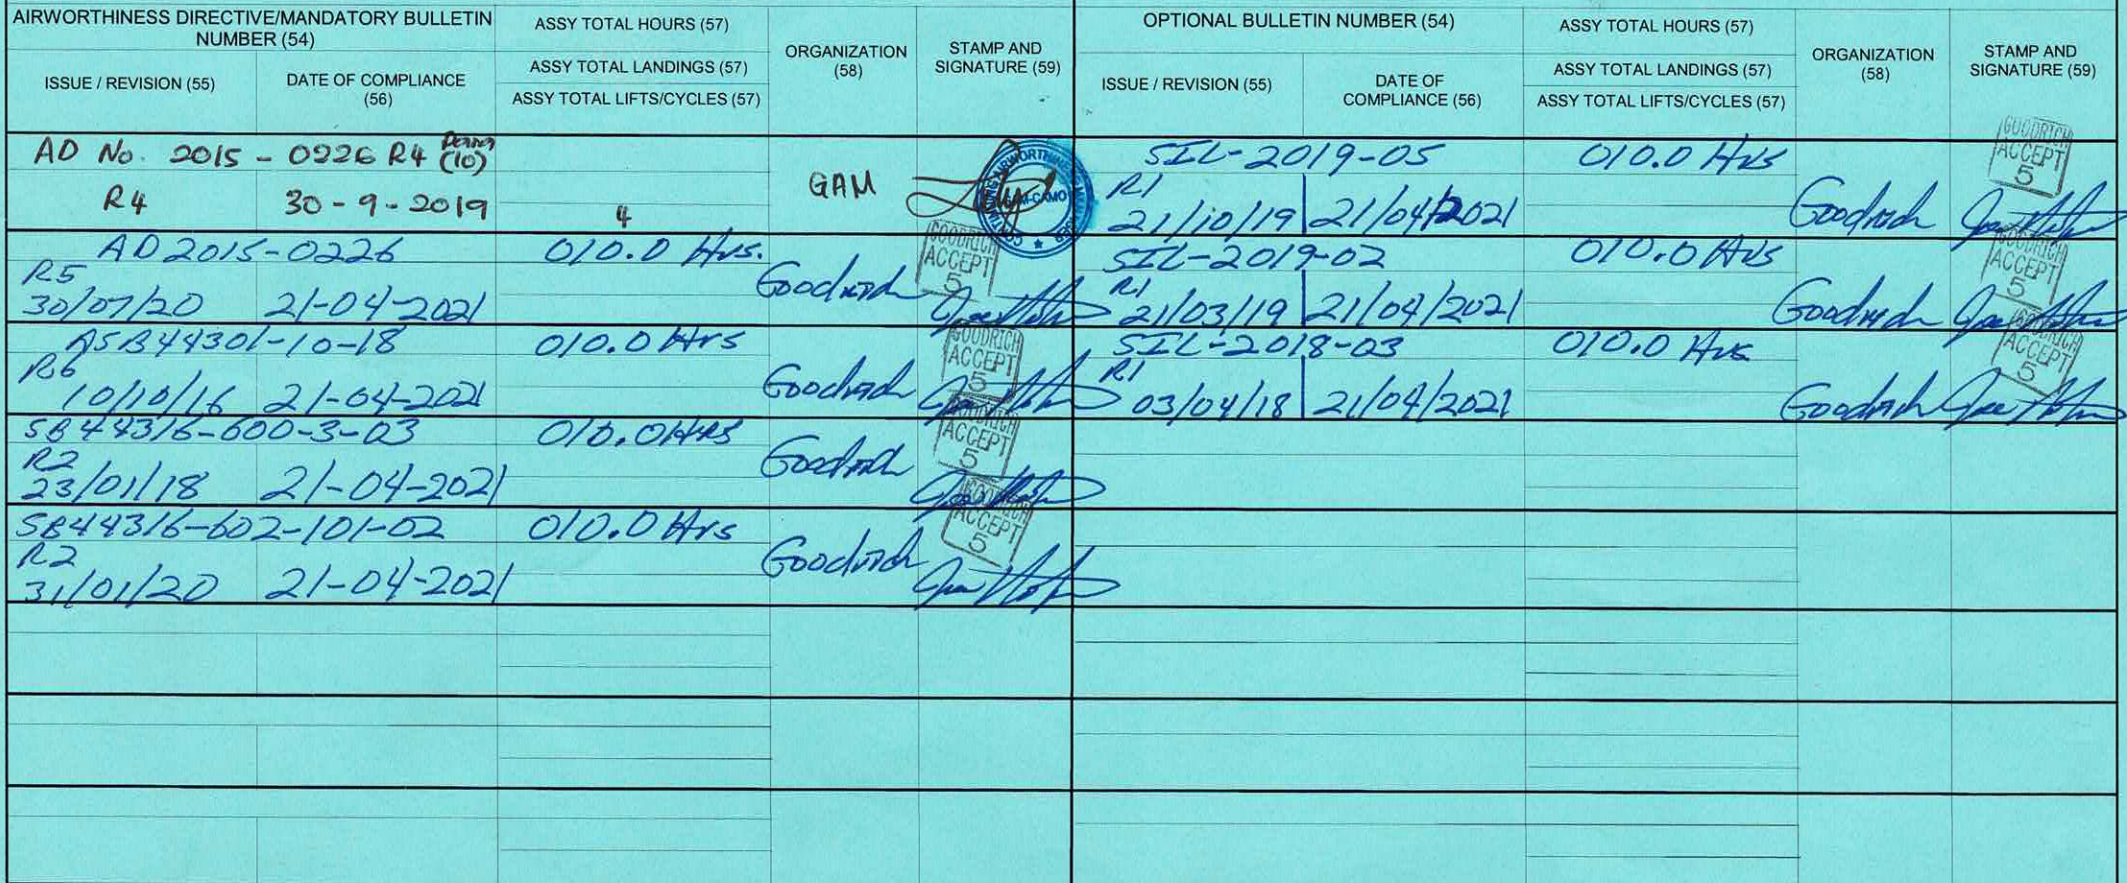 AIRWORTHINESS DIRECTIVE/MANDATORY BULLETIN
NUMBER (54)
ISSUE / REVISION (55)
DATE OF COMPLIANCE
(56)
ASSY TOTAL HOURS (57)
ASSY TOTAL LANDINGS (57)
ASSY TOTAL LIFTS/CYCLES (57)
ORGANIZATION
(58)
STAMP AND
SIGNATURE (59)
AD No. 2015 - 0226 R4 (10)
R4 30-9-2019
4
GAM
AD 2015-0226 010.0 Hrs.
R5
30/07/20 21-04-2021
Goodrich
GOODRICH
ACCEPT
5
ASB44301-10-18 010.0 Hrs
R6
10/10/16 21-04-2021
Goodrich
GOODRICH
ACCEPT
5
SB44316-600-3-03 010.0 Hrs
R2
23/01/18 21-04-2021
Goodrich
GOODRICH
ACCEPT
5
SB44316-602-101-02 010.0 Hrs
R2
31/01/20 21-04-2021
Goodrich
GOODRICH
ACCEPT
5
OPTIONAL BULLETIN NUMBER (54)
ISSUE / REVISION (55)
DATE OF
COMPLIANCE (56)
ASSY TOTAL HOURS (57)
ASSY TOTAL LANDINGS (57)
ASSY TOTAL LIFTS/CYCLES (57)
ORGANIZATION
(58)
STAMP AND
SIGNATURE (59)
SIL-2019-05 010.0 Hrs
R1
21/10/19 21/04/2021
Goodrich
GOODRICH
ACCEPT
5
SIL-2019-02 010.0 Hrs
R1
21/03/19 21/04/2021
Goodrich
GOODRICH
ACCEPT
5
SIL-2018-03 010.0 Hrs
R1
03/04/18 21/04/2021
Goodrich
GOODRICH
ACCEPT
5